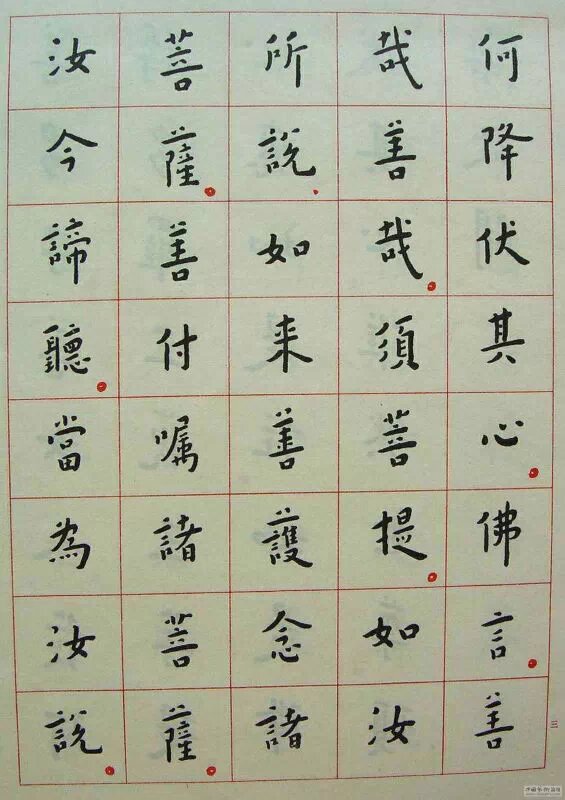 何降伏其心。佛言。善
哉善哉。須菩提。如汝
所說。如来善護念諸
菩薩。善付嘱諸菩薩。
汝今諦聽。當為汝說。
三